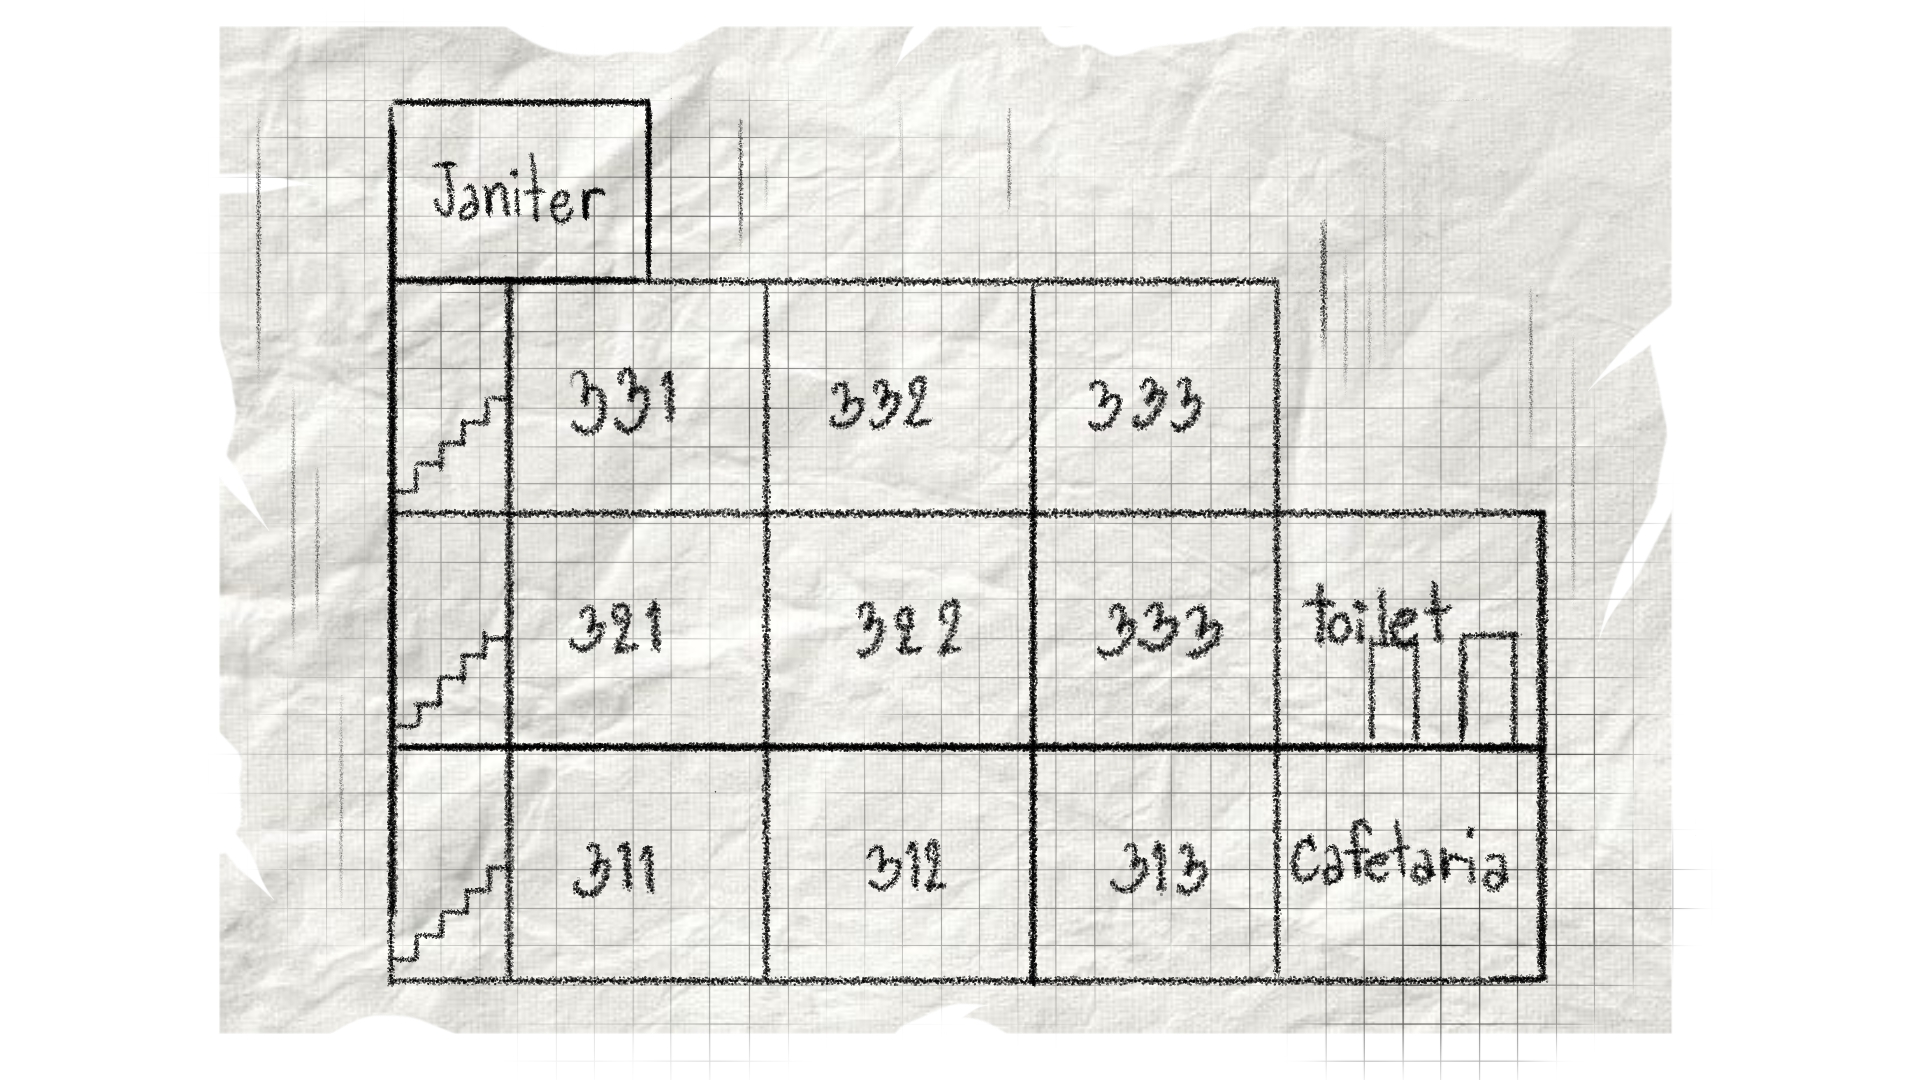 Janiter
331 332 333
321 322 333 toilet
311 312 313 cafetaria